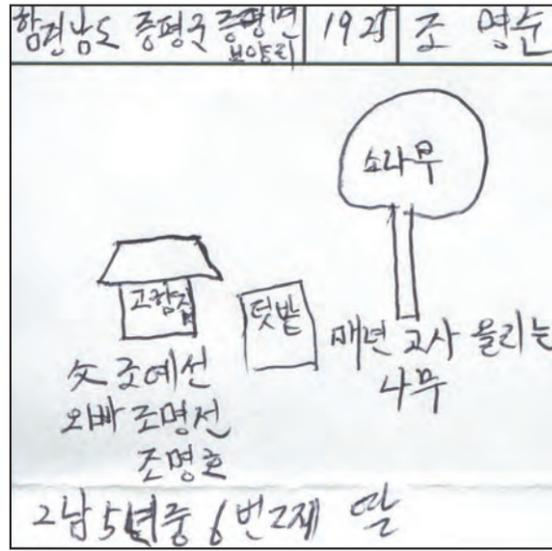 함경남도 증평군 증평면 1925 조 명순
보양리
소라무
고향집
텃밭
매년 고사 올리는
나무
父 조예선
오빠 조명선
조명호
2남 5녀중 6번째 딸